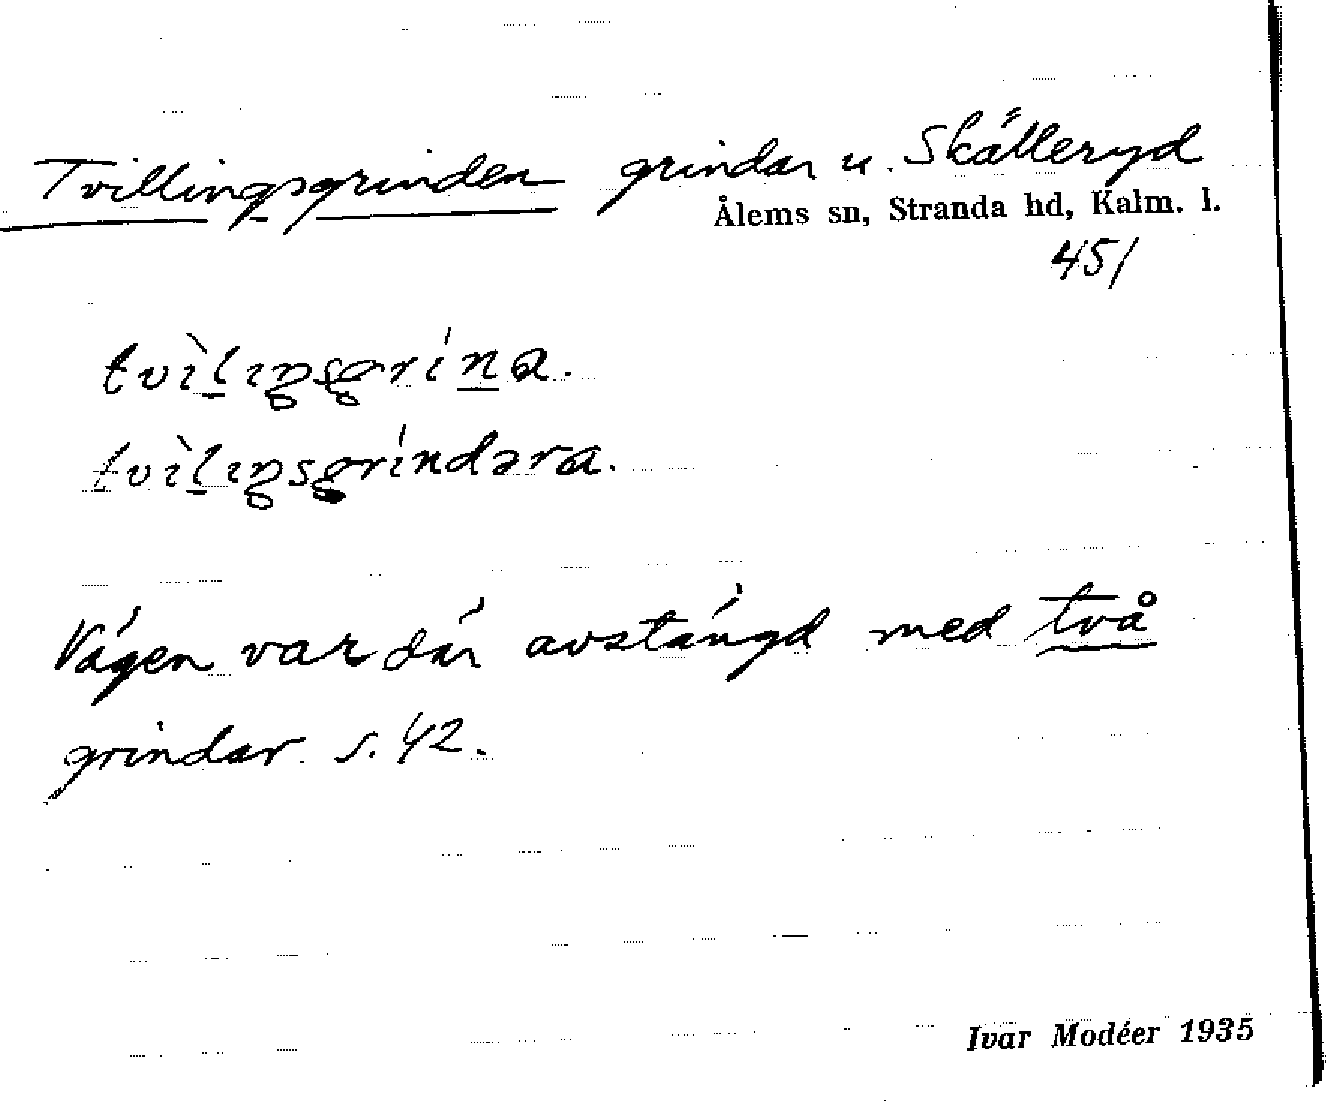 Tvillingsgrinden grindar u. Skälleryd
Ålems sn, Stranda hd, Kalm. l.
451
tvìlıŋsgrína.
tvìlıŋsgríndəra.
Vägen var där avstängd med två
grindar. s. 42.
Ivar Modéer 1935